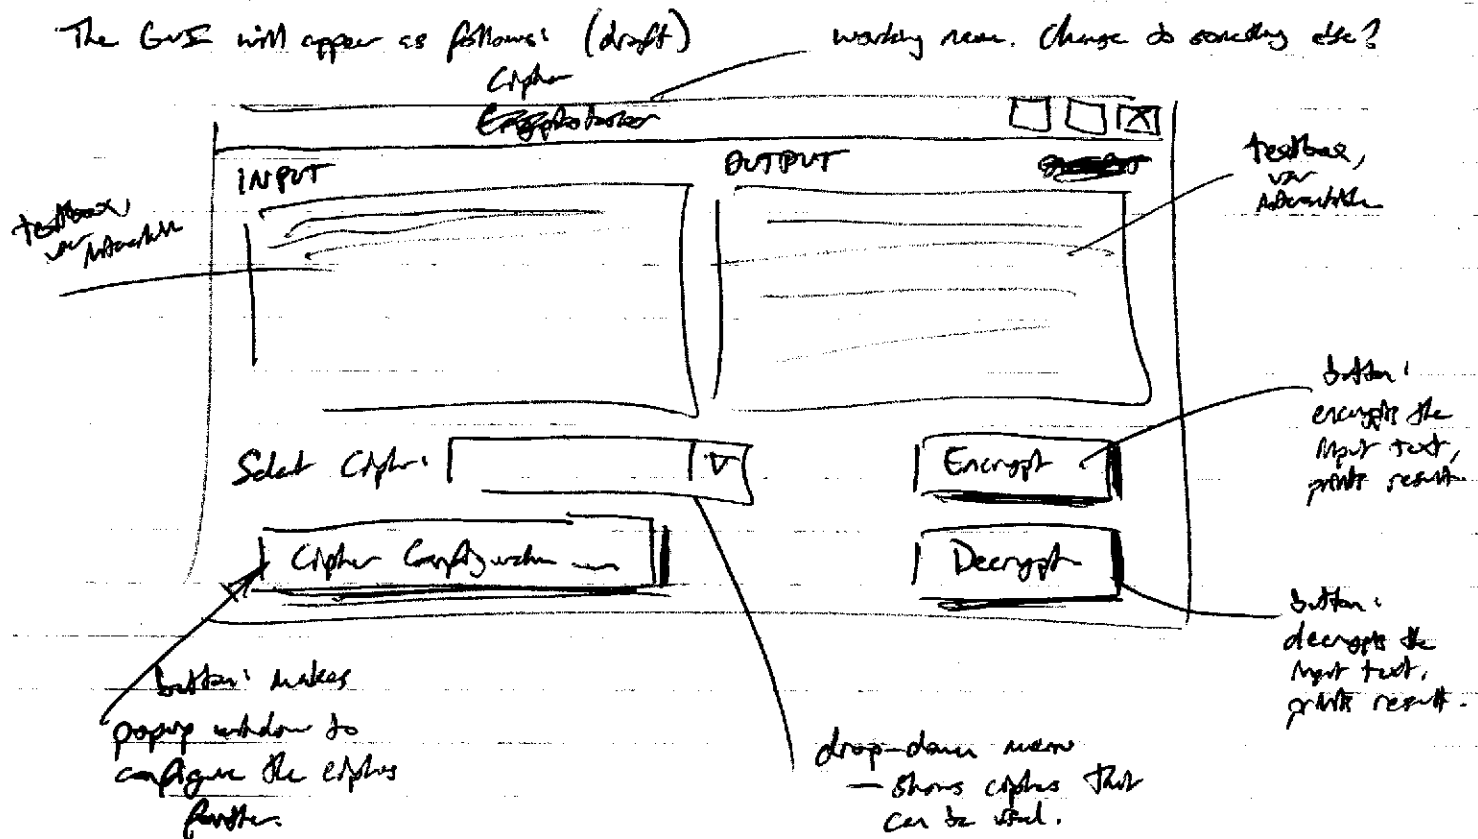 The GUI will appear as follows: (draft)
working name. Change to something else?
Cipher
INPUT
OUTPUT
textbox,
user
interactable
textbox,
user
interactable
Select Cipher:
Encrypt
Cipher Configuration ...
Decrypt
button:
encrypts the
input text,
prints result.
button:
decrypts the
input text,
prints result.
button: makes
popup window to
configure the ciphers
further.
drop-down menu
— shows ciphers that
can be used.